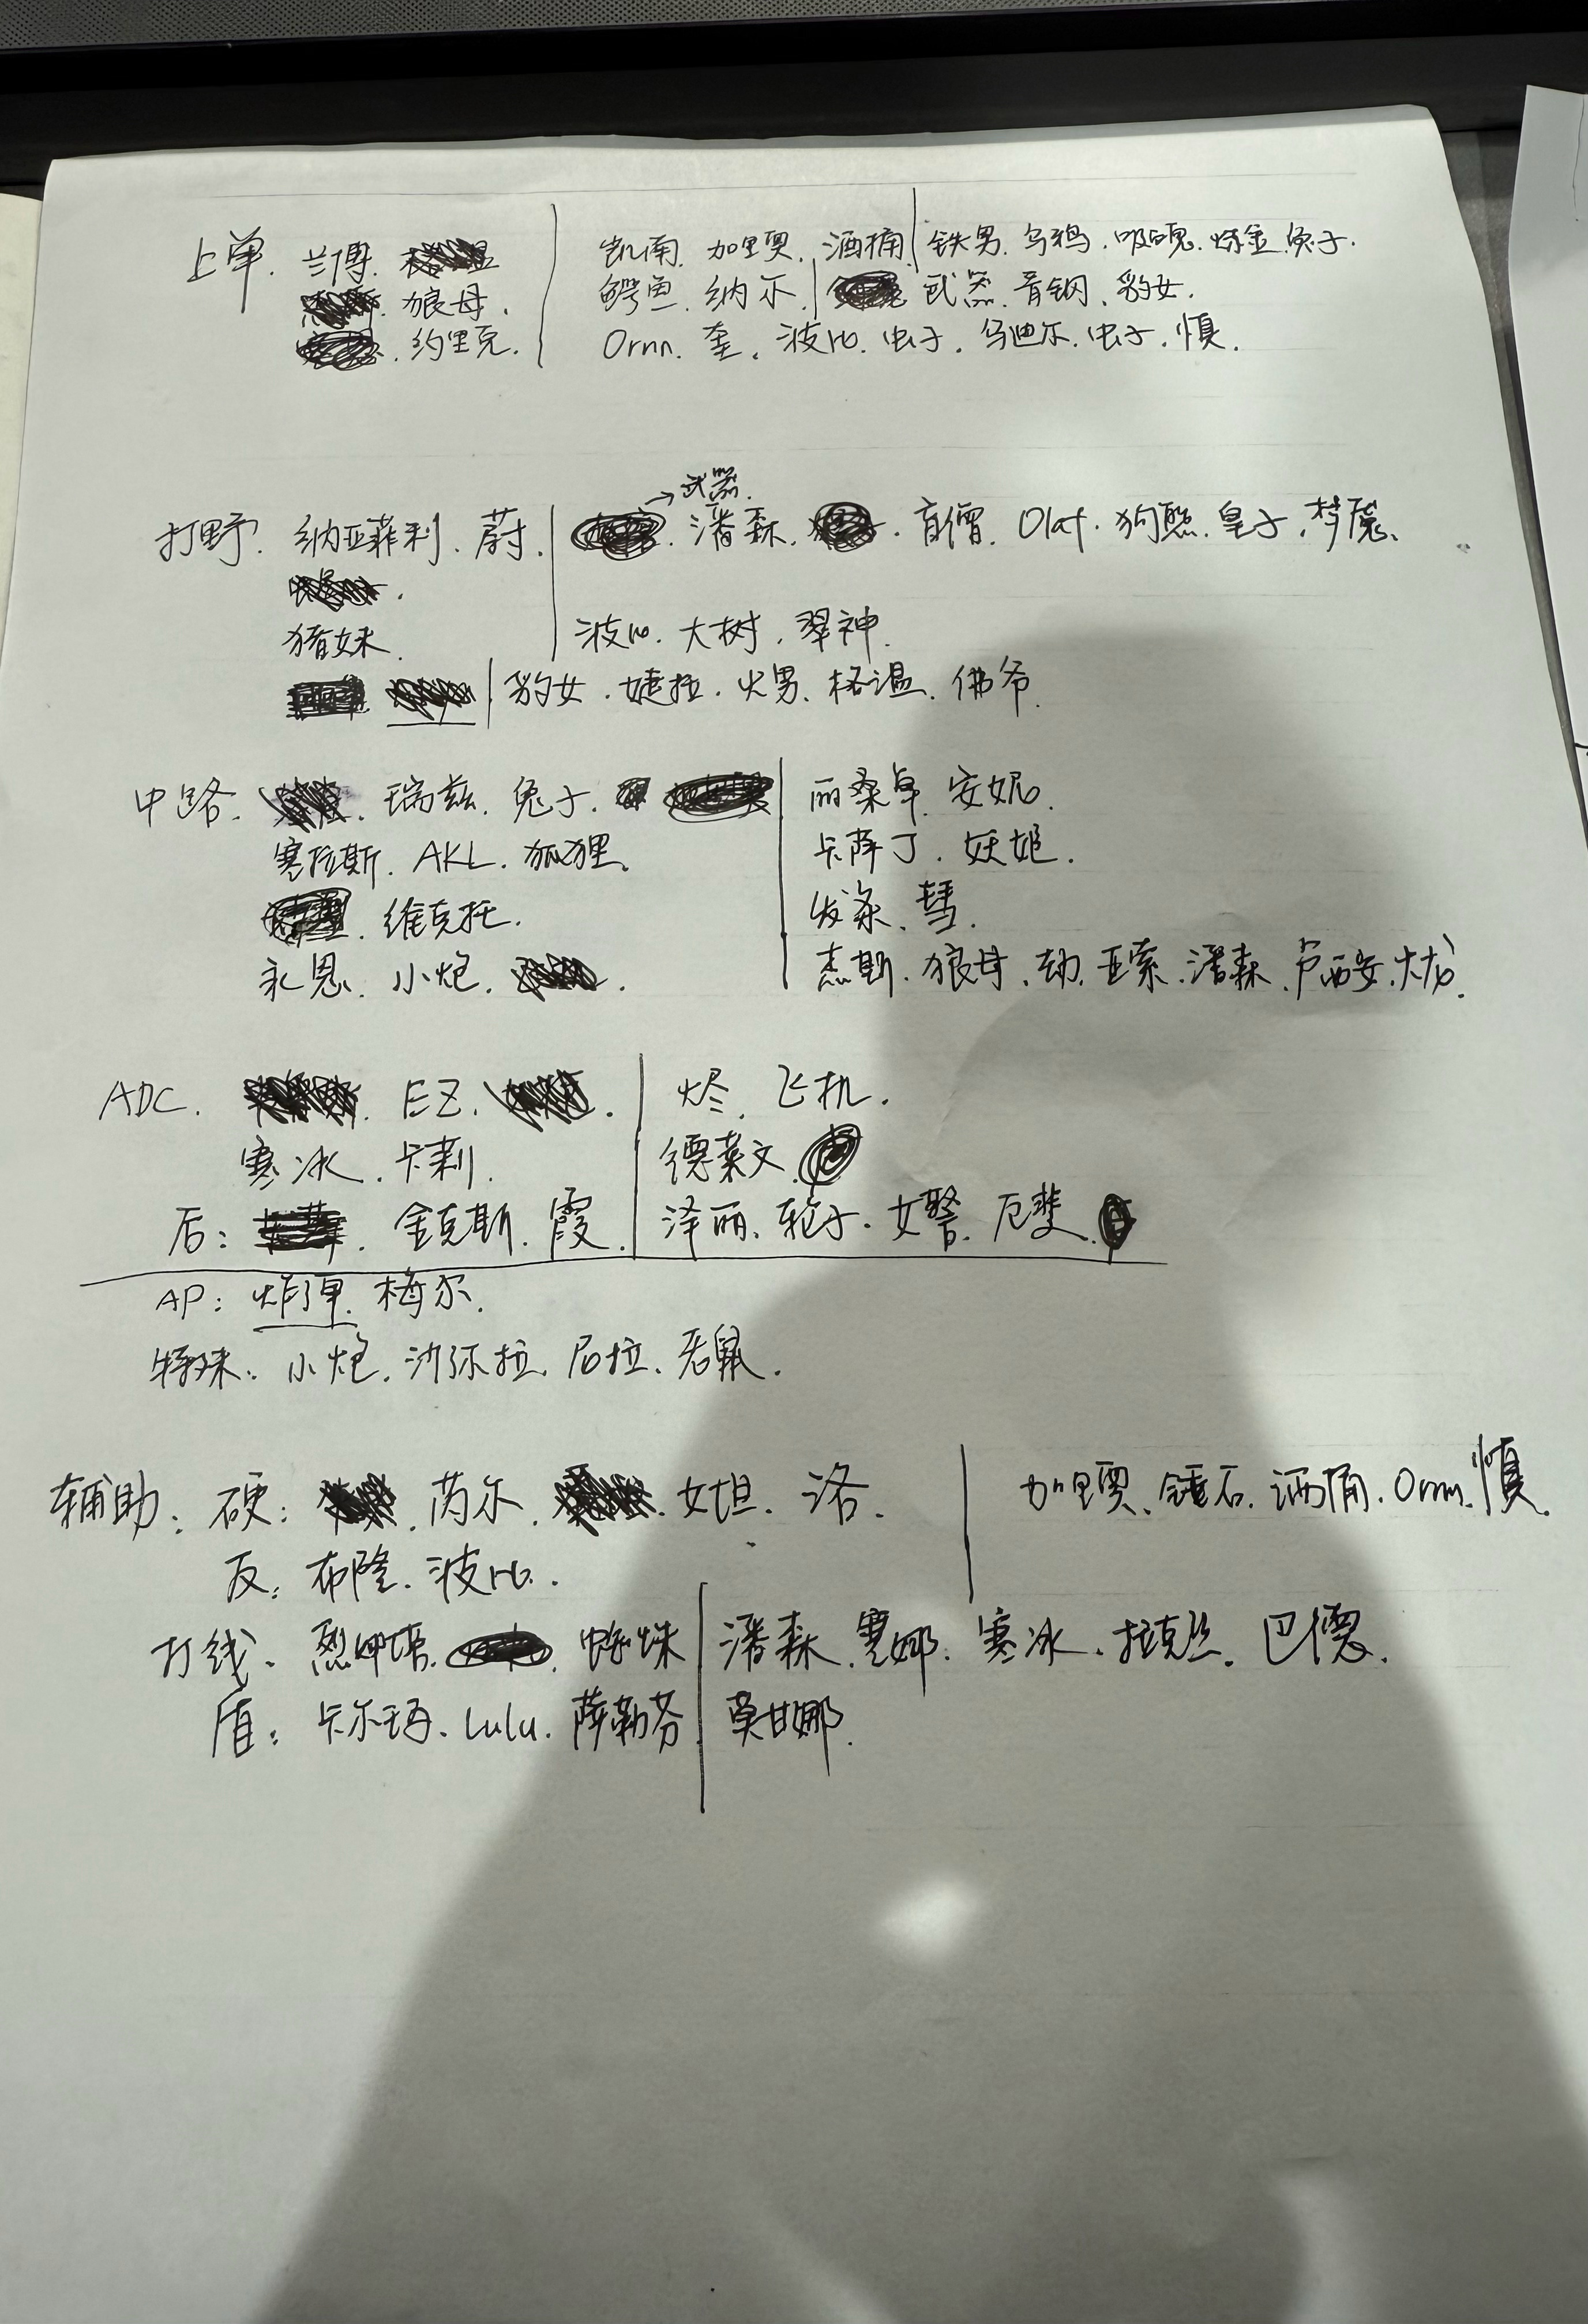 上单. 兰博. 凯南. 加里奥. 酒桶 铁男. 乌鸦. 吸血鬼. 炼金. 兔子.
狼母. 鳄鱼. 纳尔 武器. 青钢. 豹女.
约里克. Ornn. 奎. 波比. 虫子. 乌迪尔. 虫子. 慎.
→武器.
打野. 纳亚菲利. 蔚. 潘森. 盲僧. Olaf. 狗熊. 皇子. 梦魇.
猪妹. 波比. 大树. 翠神.
豹女. 婕拉. 火男. 格温. 佛爷.
中路. 瑞兹. 兔子. 丽桑卓. 安妮.
塞拉斯. AKL. 狐狸. 卡萨丁. 妖姬.
维克托. 发条. 彗.
永恩. 小炮. 杰斯. 狼母. 劫. 亚索. 潘森. 卢西安. 小龙.
ADC. EZ. 烬. 飞机.
寒冰. 卡莉. 德莱文.
后: 金克斯. 霞. 泽丽. 轮子. 女警. 厄斐.
AP: 炸弹. 梅尔.
特殊: 小炮. 沙弥拉. 尼拉. 老鼠.
辅助: 硬: 芮尔. 女坦. 洛. 加里奥. 锤石. 酒桶. Ornn. 慎.
反: 布隆. 波比.
打线. 烈娜塔. 蜘蛛 潘森. 塞娜. 寒冰. 拉克丝. 巴德.
盾: 卡尔玛. Lulu. 萨勒芬 莫甘娜.